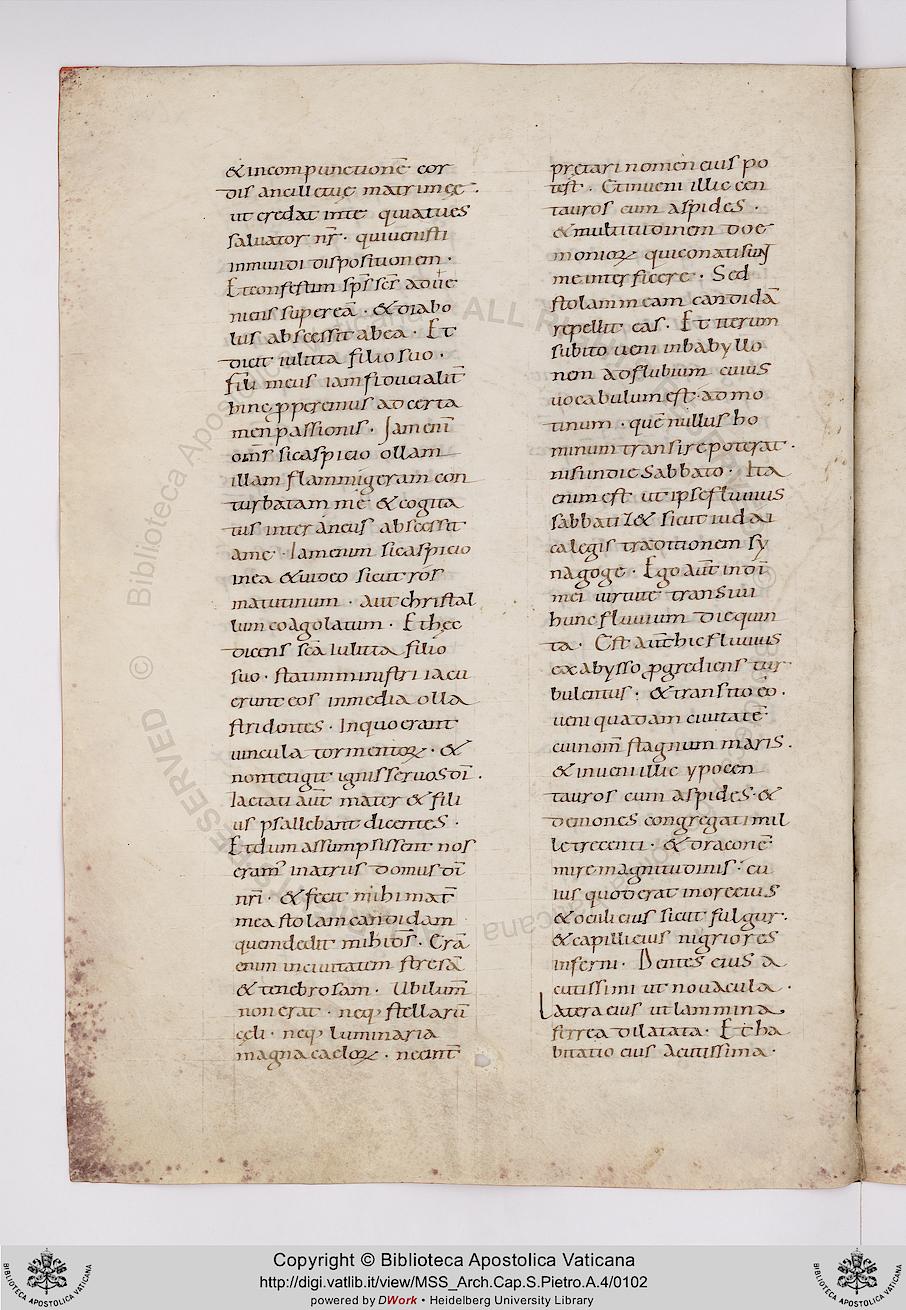 & incompunctionē cor
dis ancillę tuę matrimeę.
ut credat inte quia tu es
saluator nr̄. qui uenisti
inmundi dispositionem.
Et confestim sp̄s sc̄s adue
niens super eā. & diabo
lus abscessit ab ea. Et
dicit iulitta filio suo.
fili meus iam fiducialit̄
hinc pperemus ad certa
men passionis. Jam enī
om̄s sic aspicio ollam
illam flammigeram con
turbatam me & cogita
tus inter ancius abscessit
ame. Iam enim sic aspicio
in ea & uideo sicut ros
matutinum. aut christal
lum coagolatum. Et hęc
dicens sc̄a iulitta filio
suo. statim ministri iacu
erunt eos in media olla
stridentes. In quo erant
uincula tormentorꝝ. &
non tetigit ignis seruos dī.
laetati aūt mater & fili
us psallebant dicentes.
Et dum assumpsissent nos
eram' in atrus domus dī
nr̄i. & fecit mihi mat̄
mea stolam candidam
quem dedit mihi dō̄s. Erā
enim in ciuitatem stresā
& tenebrosam. Ubi lum̄
non erat. neq stellarū
cęli. neq luminaria
magna caelorꝝ. nec int̄
pretari nomen eius po
test. Et inueni illic cen
tauros cum aspides.
& multitudinem doe
moniorꝝ qui conati sunt
me interficere. Sed
stolam meam candidā
repellit eas. Et iterum
subito ueni in babyllo
nen ad flubium cuius
uocabulum est. ad mo
tinum. quē nullus ho
minum transire poterat.
nisi in die sabbato. Ita
enim est ut ipse fluuius
sabbatiz& sicut iudai
ca legis traditionem sy
nagoge. Ego aūt in dī
mei uirtute transiui
hunc fluuium die quin
ta. Est aūt hic fluuius
ex abysso pgrediens tur
bulentus. & transito eo.
ueni quadam ciuitatē
cui nom̄ stagnum maris.
& inueni illic ypocen
tauros cum aspides. &
demones congregati mil
le trecenti. & draconē
mire magnitudinis. cu
ius quod erat inore eius
& oculi eius sicut fulgur.
& capilli eius nigriores
inferni. Dentes eius a
cutissimi ut nouacula.
Latera eius ut lammina
ferrea dilatata. Et ha
bitatio eius acutissima.
Copyright © Biblioteca Apostolica Vaticana
http://digi.vatlib.it/view/MSS_Arch.Cap.S.Pietro.A.4/0102
powered by DWork • Heidelberg University Library